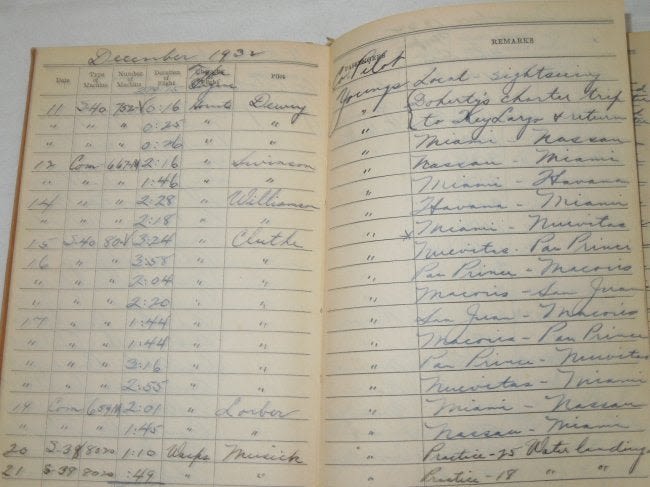 December 1932
Date Type of Machine Number of Machine Duration of Flight PILOT
11 S-40 752V 0:16 Hornets Dewey
" " " 0:25 " "
" " " 0:26 " "
12 Com 667M 2:16 " Swinson
" " " 1:46 " "
14 " " 2:28 " Williamson
" " " 2:18 " "
15 S-40 80V 3:24 " Cluthe
16 " " 3:58 " "
" " " 2:04 " "
" " " 2:20 " "
17 " " 1:44 " "
" " " 1:44 " "
" " " 3:16 " "
" " " 2:55 " "
19 Com 659M 2:01 " Lorber
" " " 1:45 " "
20 S-38 8020 1:10 Wasps Musick
21 S-38 8020 :49 " "
Co. Pilot REMARKS
Youngs Local - sightseeing
" Doherty's charter trip
" to Key Largo & return
" Miami - Nassau
" Nassau - Miami
" Miami - Havana
" Havana - Miami
" Miami - Nuevitas
" Nuevitas - Pau Prince
" Pau Prince - Macoris
" Macoris - San Juan
" San Juan - Macoris
" Macoris - Pau Prince
" Pau Prince - Nuevitas
" Nuevitas - Miami
" Miami - Nassau
" Nassau - Miami
" Practice - 25 Water landings
" Practice - 18 " "